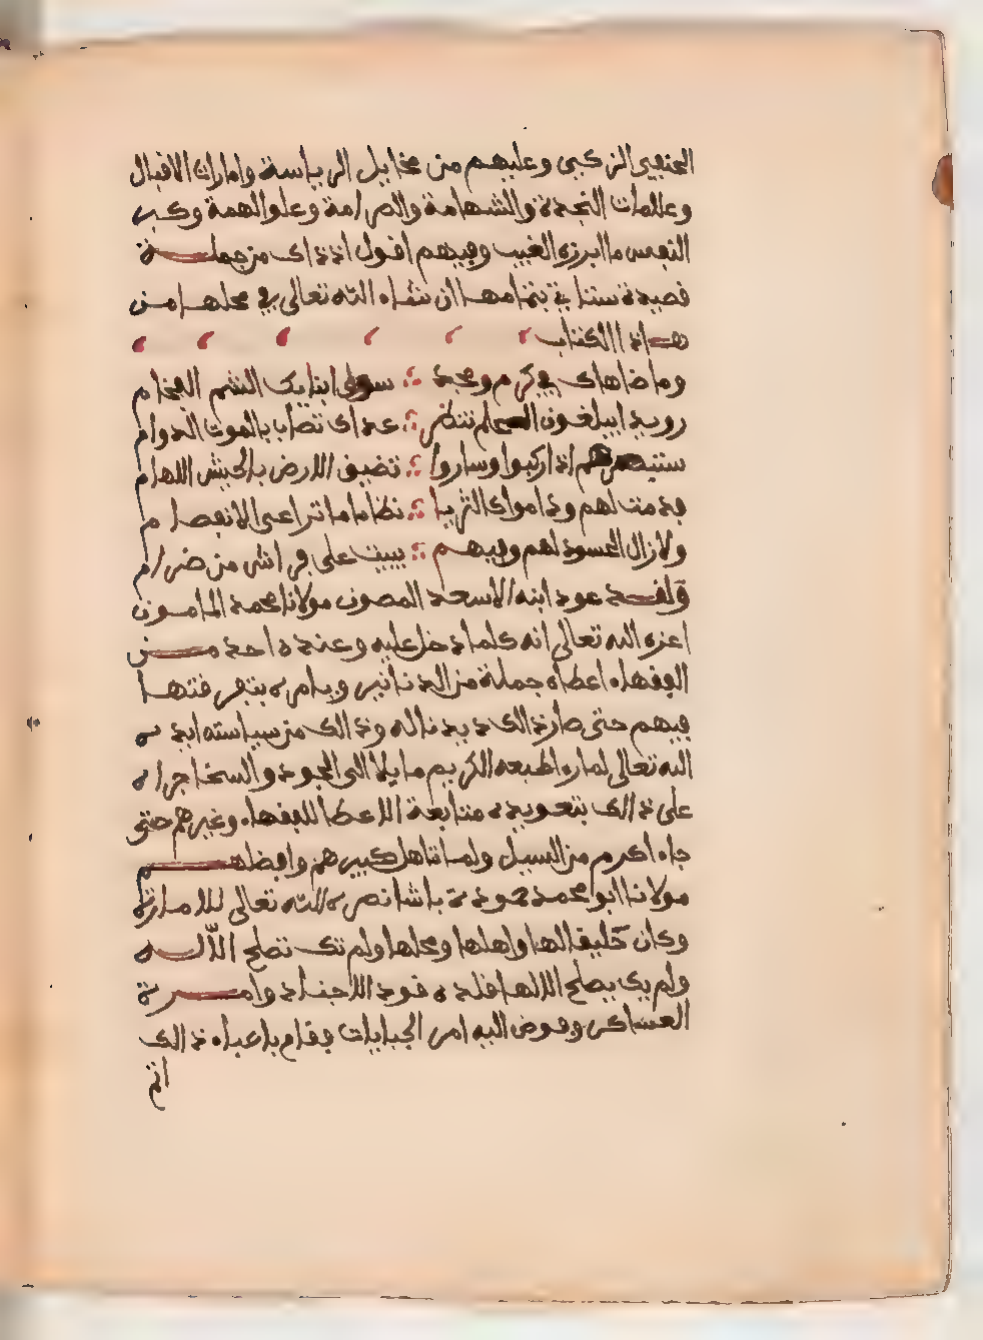 الحنفيى الزكيى وعليهم من مخايل الرياسة وامارات الاقبال
وعلامات النجدة والشهامة والصرامة وعلو الهمة وكبر
النفس ما ابرزه الغيب وفيهم اقول اذذاك من جملة
قصيدة ستاتي بتمامها ان شاء الله تعالى في محلها من
هذا الكتاب
وما ضاهاك في كرم ومجد ؛ سوى ابنايك الشم الفخام
رويدا يبلغون الحلم تنظر ؛ عداك تصاب بالموت الدوام
ستبصرهم اذا ركبوا وساروا ؛ تضيق الارض بالجيش اللهام
فدمت لهم وداموا كالثريا ؛ نظاما ما تراعى الانفصام
ولازال الحسود لهم وفيهم ؛ يبيت على فراش من ضرام
ولقد عود ابنه الاسعد المصون مولانا محمد المامون
اعزه الله تعالى انه كلما دخل عليه وعنده احد من
الفقهاء اعطاه جملة من الدنانير ويامره بتفرقتها
فيهم حتى صار ذالك ديدنا له وذالك من سياسته ايده
الله تعالى لما راه اطبعه الكريم مايلا الى الجود والسخا جراه
على ذالك بتعويده متابعة الاعطا للفقهاء وغيرهم حتى
جاء اكرم من السيل ولما تاهل كبيرهم وافضلهم
مولانا ابو محمد حمودة باشا نصره الله تعالى للامارة
وكان خليقا لها واهلها ومحلها ولم تك تصلح الا له
ولم يك يصلح الا لها قلده قود الاجناد وامرة
العساكر وفوض اليه امر الجبايات فقام باعباء ذالك
اتم